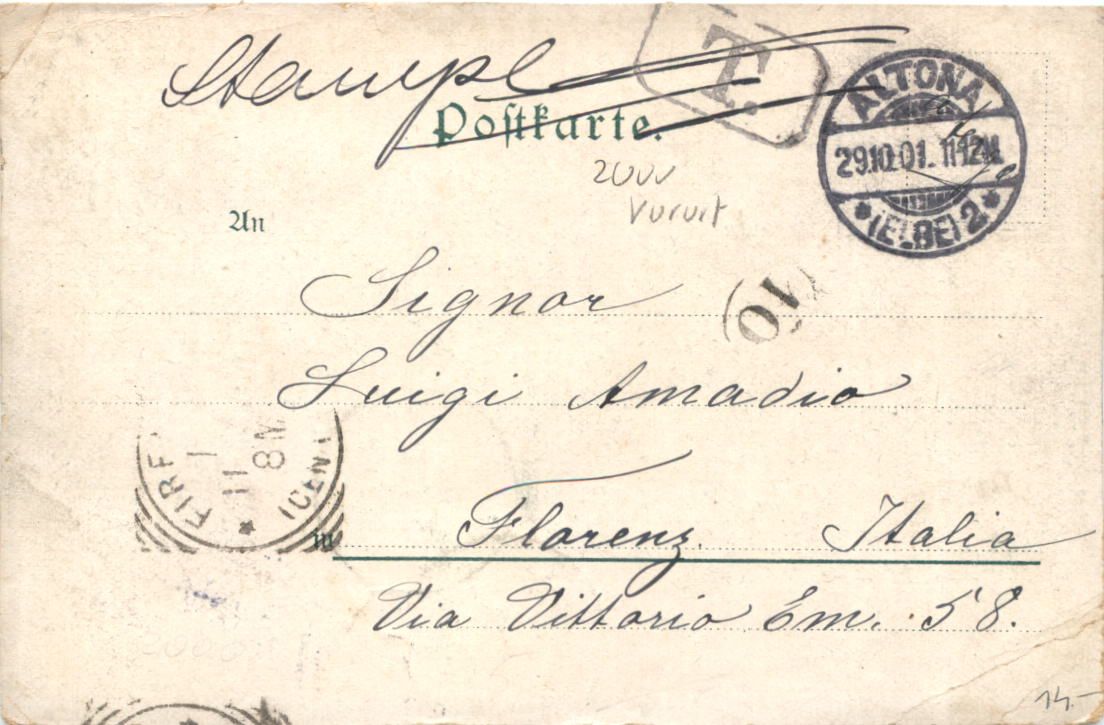 Stampe
T.
Postkarte.
ALTONA
29.10.01. 11-12N.
* (ELBE) 2 *
2000
Vorort
An
Signor
10
Luigi Amadio
FIRE
1
11
8M
ICENT
*
in Florenz. Italia
Via Vittorio Em. 58.
14.-